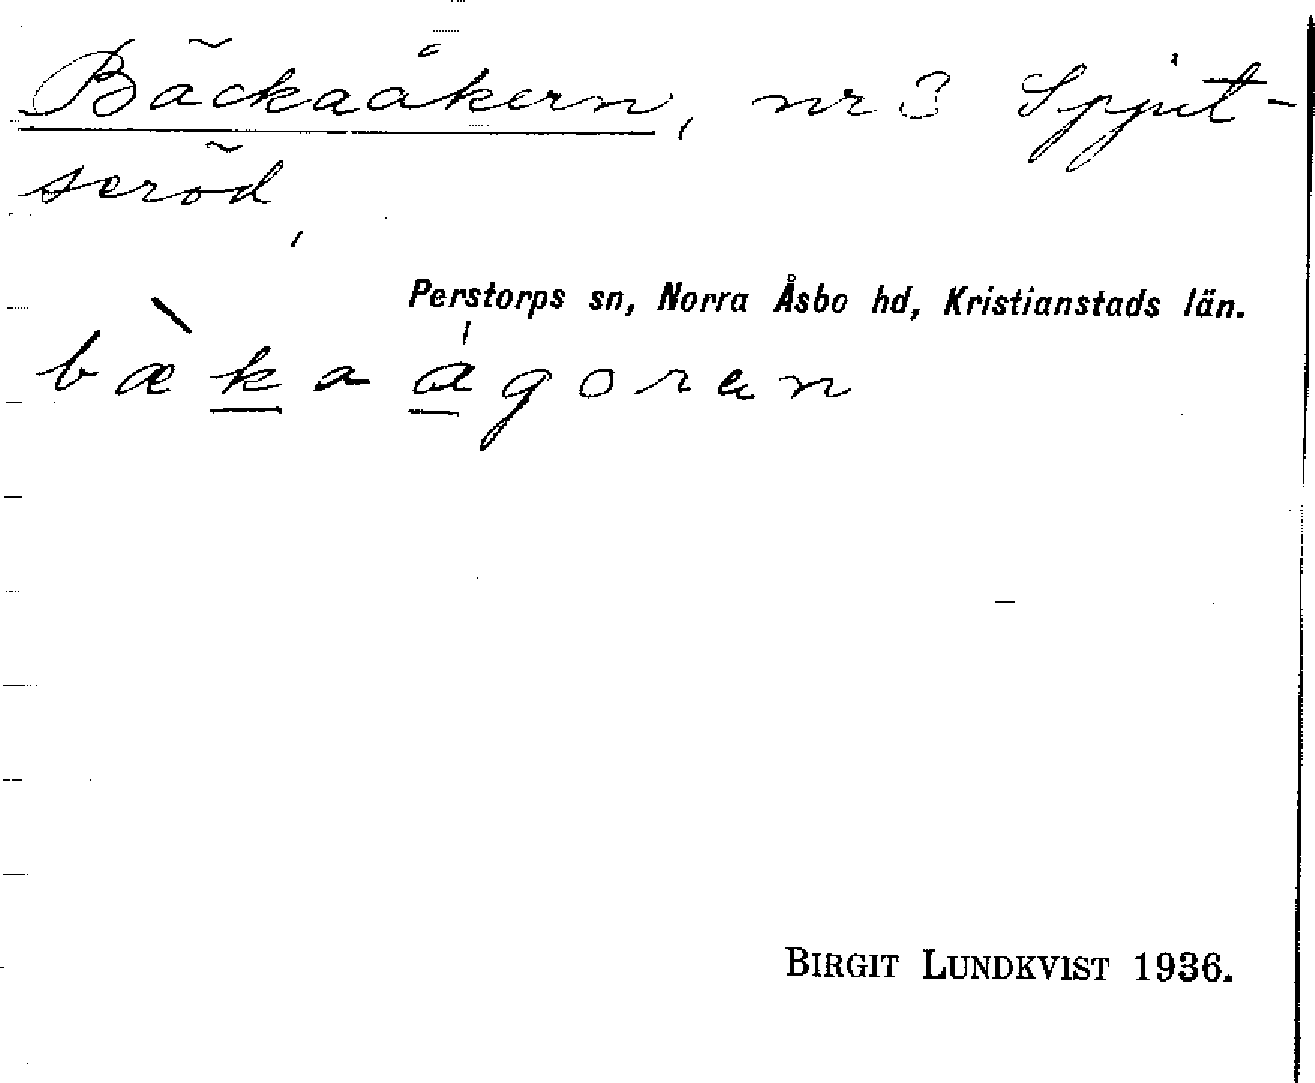 Bäckaåkern, nr 3 Spjut-
seröd,
Perstorps sn, Norra Åsbo hd, Kristianstads län.
bæ̀kaágoran
BIRGIT LUNDKVIST 1936.